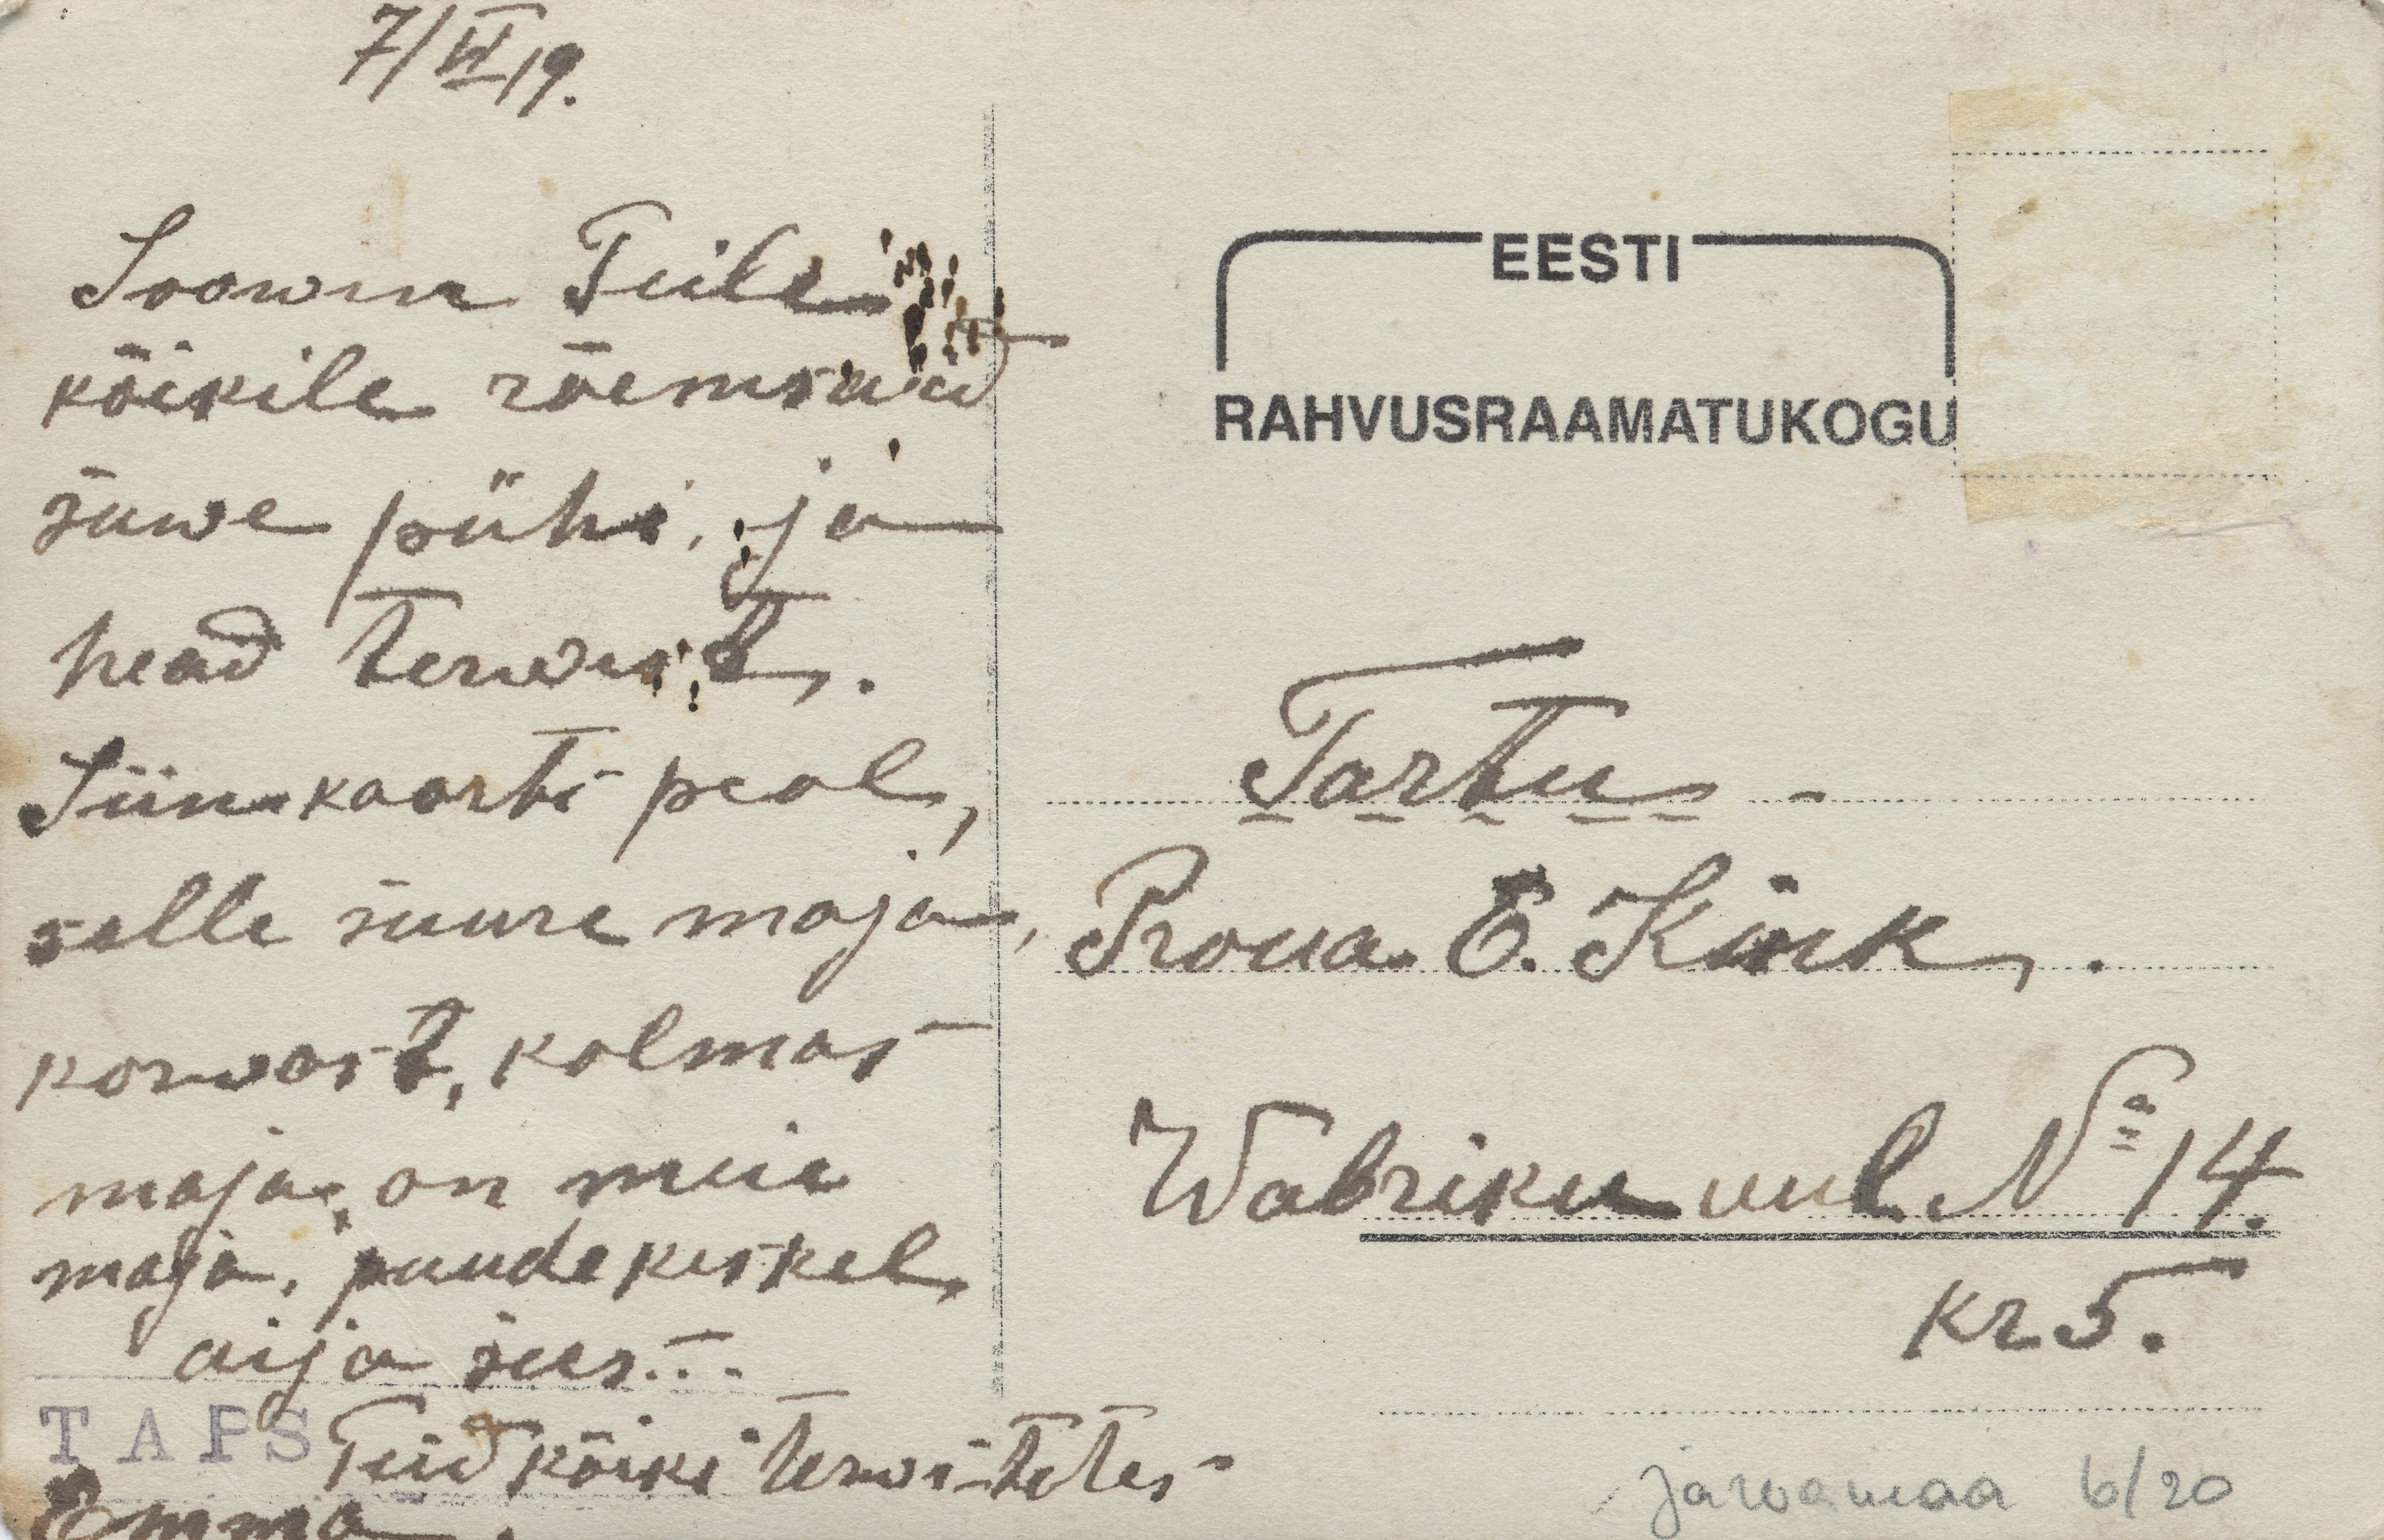 7/VI 19.
Soowin Teile
kõikile rõemsaid
suwe pühi, ja
head terwist,.
Siin kaarti peal,
selle suure maja,
korwast, kolmas
maja, on meie
maja, puude keskel,
aija sees...
Teid kõiki terwitates
Emma.
TAPS
EESTI
RAHVUSRAAMATUKOGU
Tartu -
Proua E. Kink,.
Wabriku uul. No 14.
kr 5.
Jarvamaa 6/20